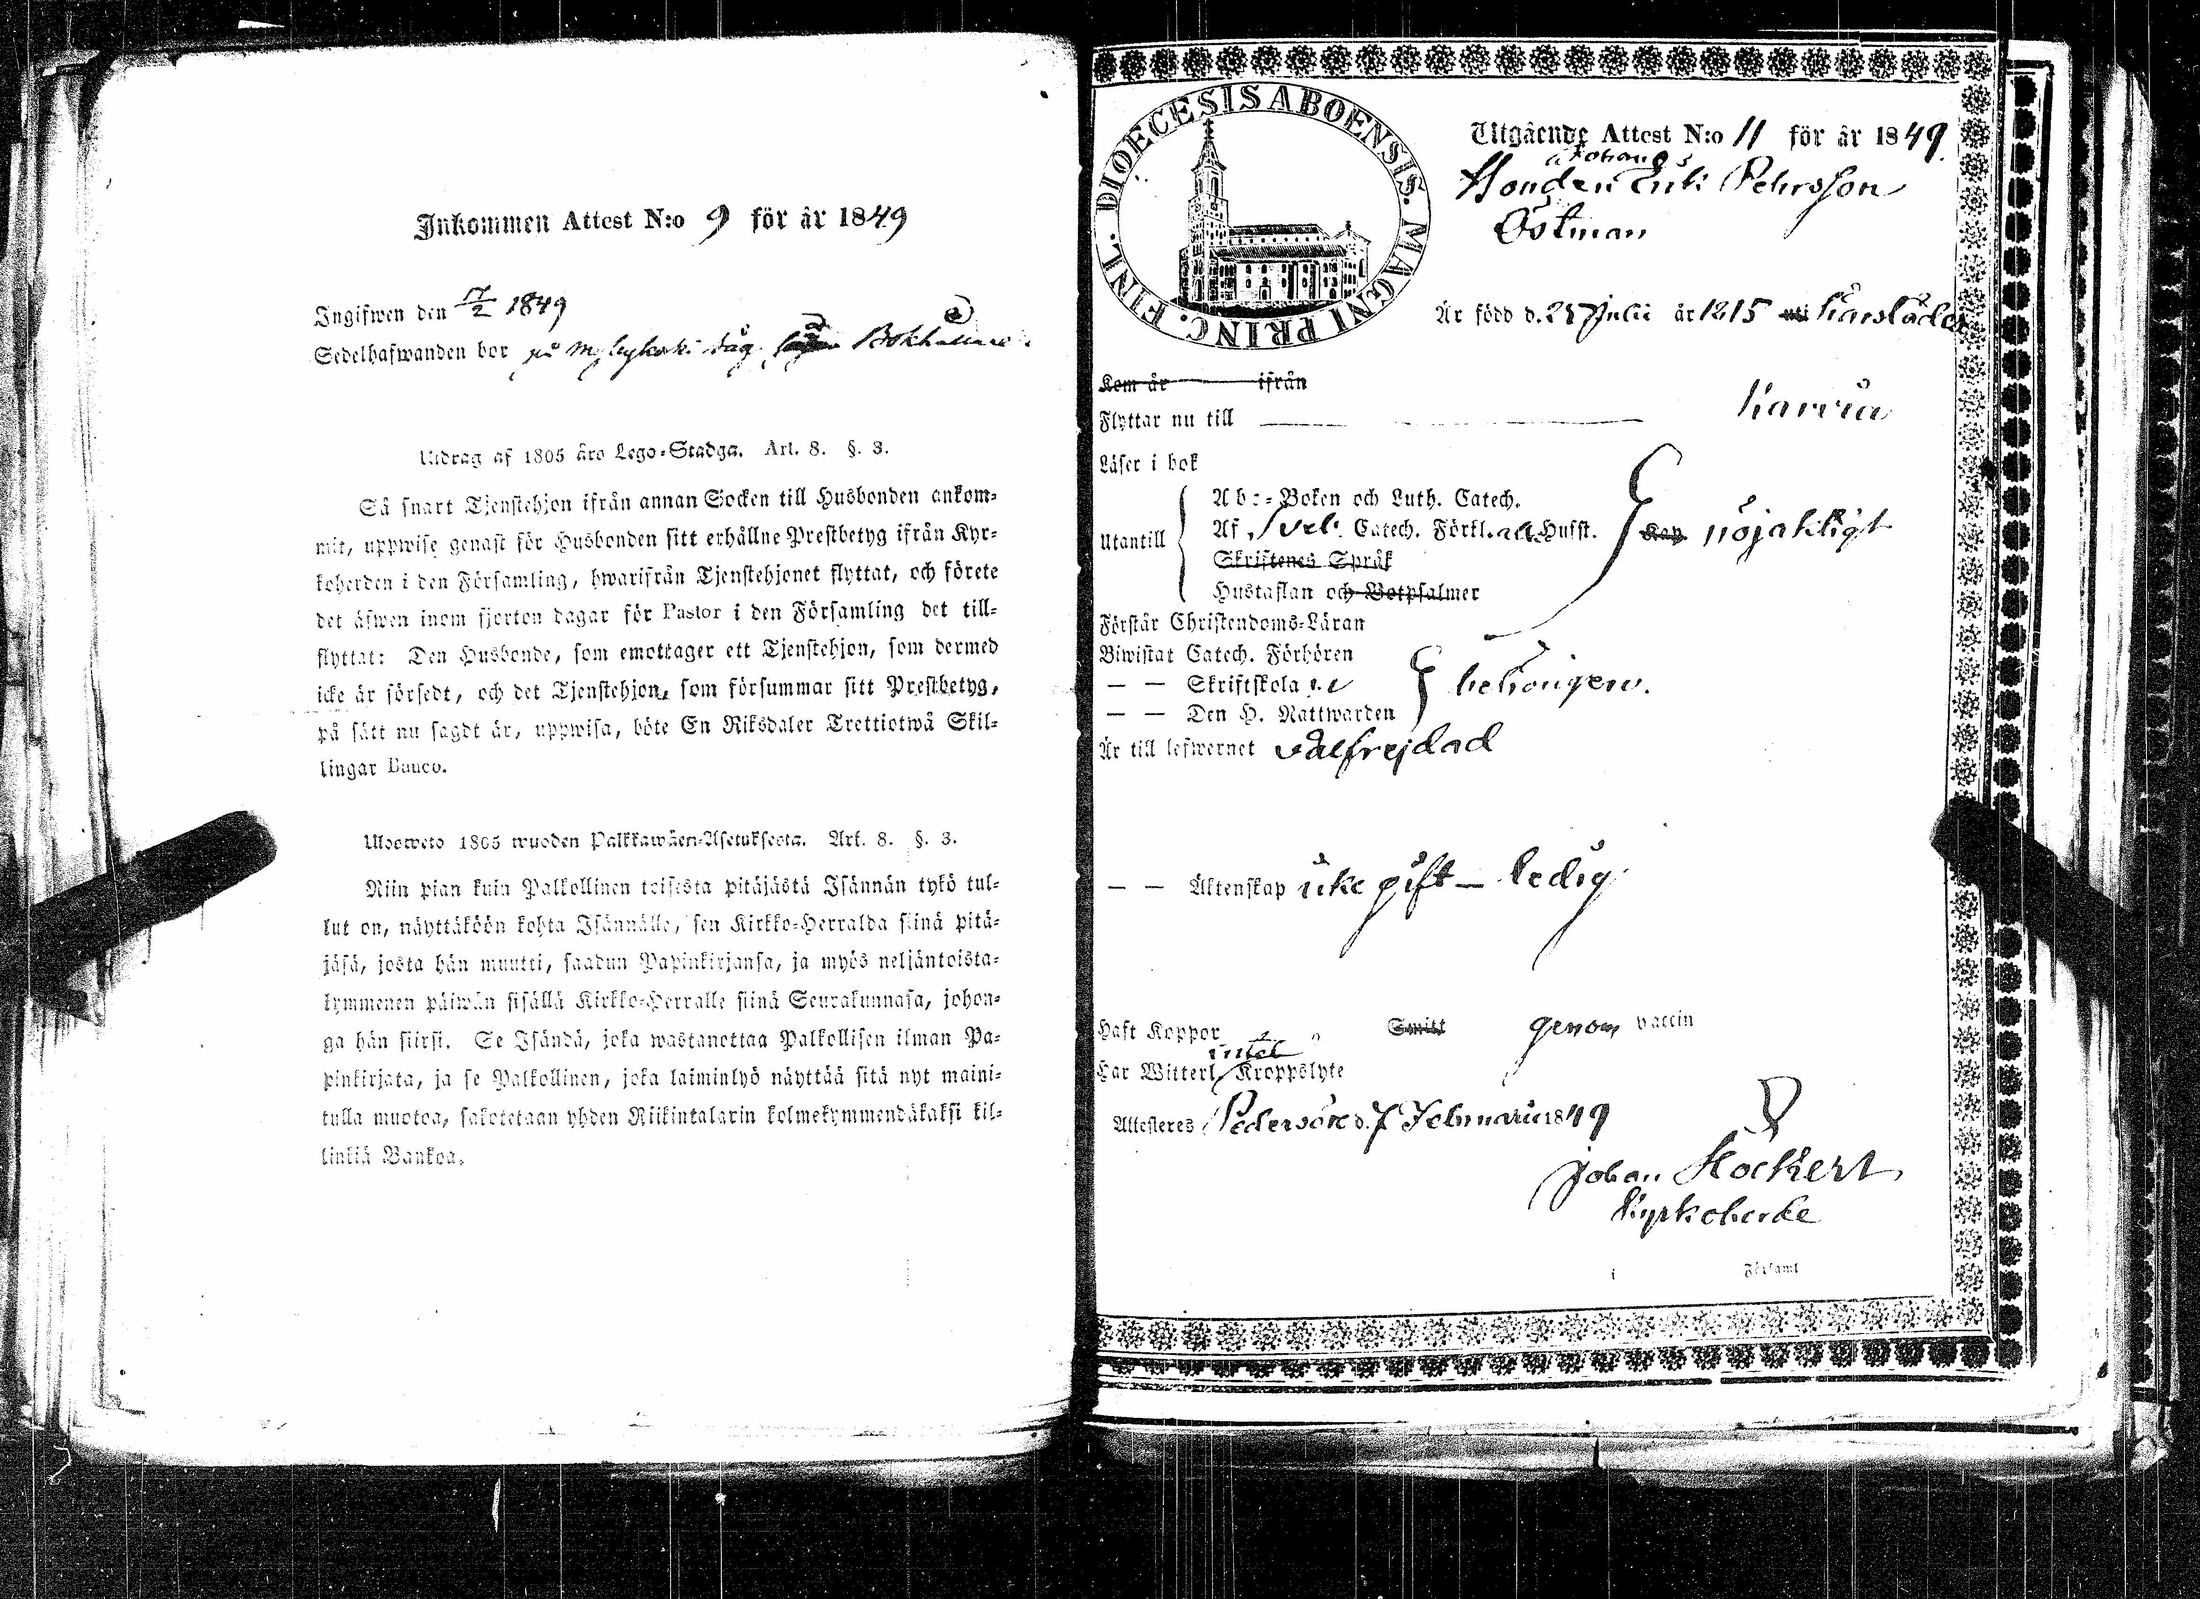 Inkommen Attest N:o 9 för år 1849
Ingifwen den 17/2 1849
Sedelhafwanden bor på
Utdrag af 1805 års Lego-Stadga. Art. 8. §. 3.
Så snart Tjenstehjon ifrån annan Socken till Husbonden ankom-
mit, uppwise genast för Husbonden sitt erhållne Prestbetyg ifrån Kyr-
koherden i den Församling, hwarifrån Tjenstehjonet flyttat, och förete
det äfwen inom fjorton dagar för Pastor i den Församling det till-
flyttat: Den Husbonde, som emottager ett Tjenstehjon, som dermed
icke är försedt, och det Tjenstehjon, som försummar sitt Prestbetyg,
på sätt nu sagdt är, uppwisa, böte En Riksdaler Trettiotwå Skil-
lingar Banco.
Ulosweto 1805 wuoden Palkkawäen-Asetuksesta. Art. 8. §. 3.
Niin pian kuin Palkollinen toisesta pitäjästä Isännän tykö tul-
lut on, näyttäköön kohta Isännälle, sen Kirkko-Herralda siinä pitä-
jäsä, josta hän muutti, saadun Papinkirjansa, ja myös neljäntoista-
kymmenen päiwän sisällä Kirkko-Herralle siinä Seurakunnasa, johon-
ga hän siirsi. Se Isändä, joka wastanottaa Palkollisen ilman Pa-
pinkirjata, ja se Palkollinen, joka laiminlyö näyttää sitä nyt maini-
tulla muotoa, sakotetaan yhden Riikintalarin kolmekymmendäkaksi kil-
linkiä Bankoa.
DIOECESIS ABOENSIS. MAGNI PRINC. FINL.
Utgående Attest N:o 11 för år 1849.
Johans
Bonden Pehrsson
Östman
Är född d. 25 Julii år 1815
Kom år ifrån
Flyttar nu till
Läser i bok
Utantill
Abc-Boken och Luth. Catech.
Af Sveb. Catech. Förkl. Husst.
Kap. nöjaktligt
Skriftenes Språk
Hustaflan och Botpsalmer
Förstår Christendoms-Läran
Biwistat Catech. Förhören
— — Skriftskola
behörigen.
— — Den H. Nattwarden
Är till lefwernet välfrejdad
— — Äktenskap icke gift — ledig
Haft Koppor Smitt genom vaccin
intet
Har Witterl. Kroppslyte
Attesteras Pedersöre d. 7 Februarii 1849
Johan Hockert
Kyrkoherde
i Församl